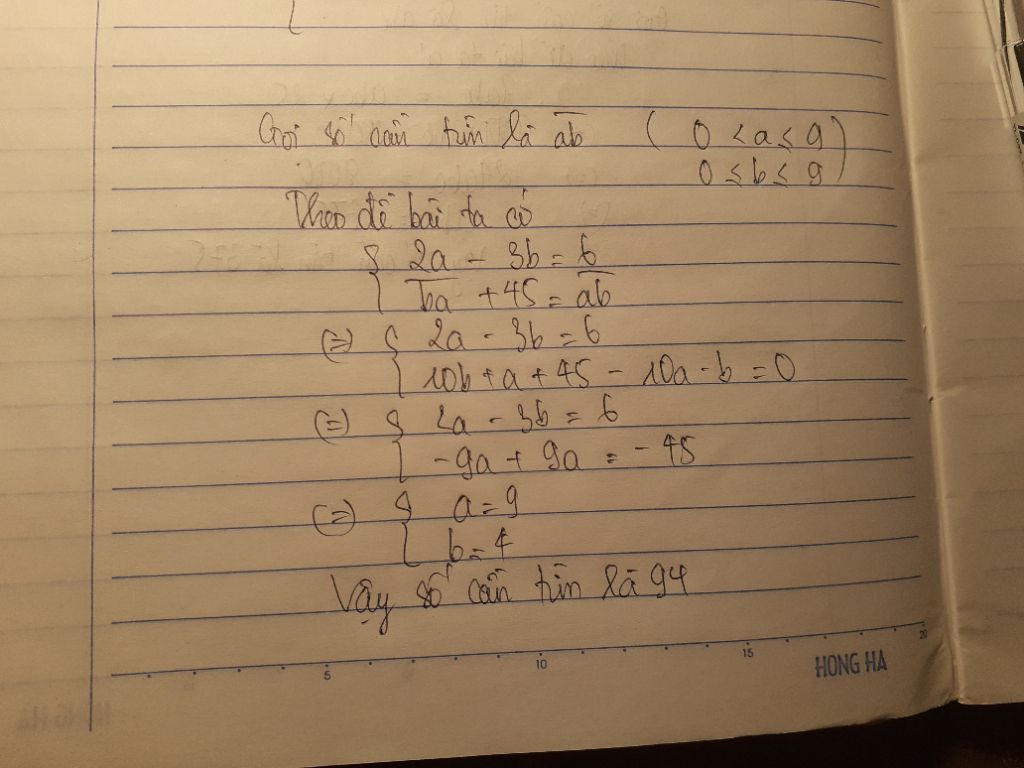 Gọi số cần tìm là ab ( 0 < a ≤ 9 )
0 ≤ b ≤ 9
Theo đề bài ta có
{ 2a - 3b = 6
ba + 45 = ab
(=) { 2a - 3b = 6
10b + a + 45 - 10a - b = 0
(=) { 2a - 3b = 6
-9a + 9a = -45
(=) { a = 9
b = 4
Vậy số cần tìm là 94
5 10 15 20
HONG HA